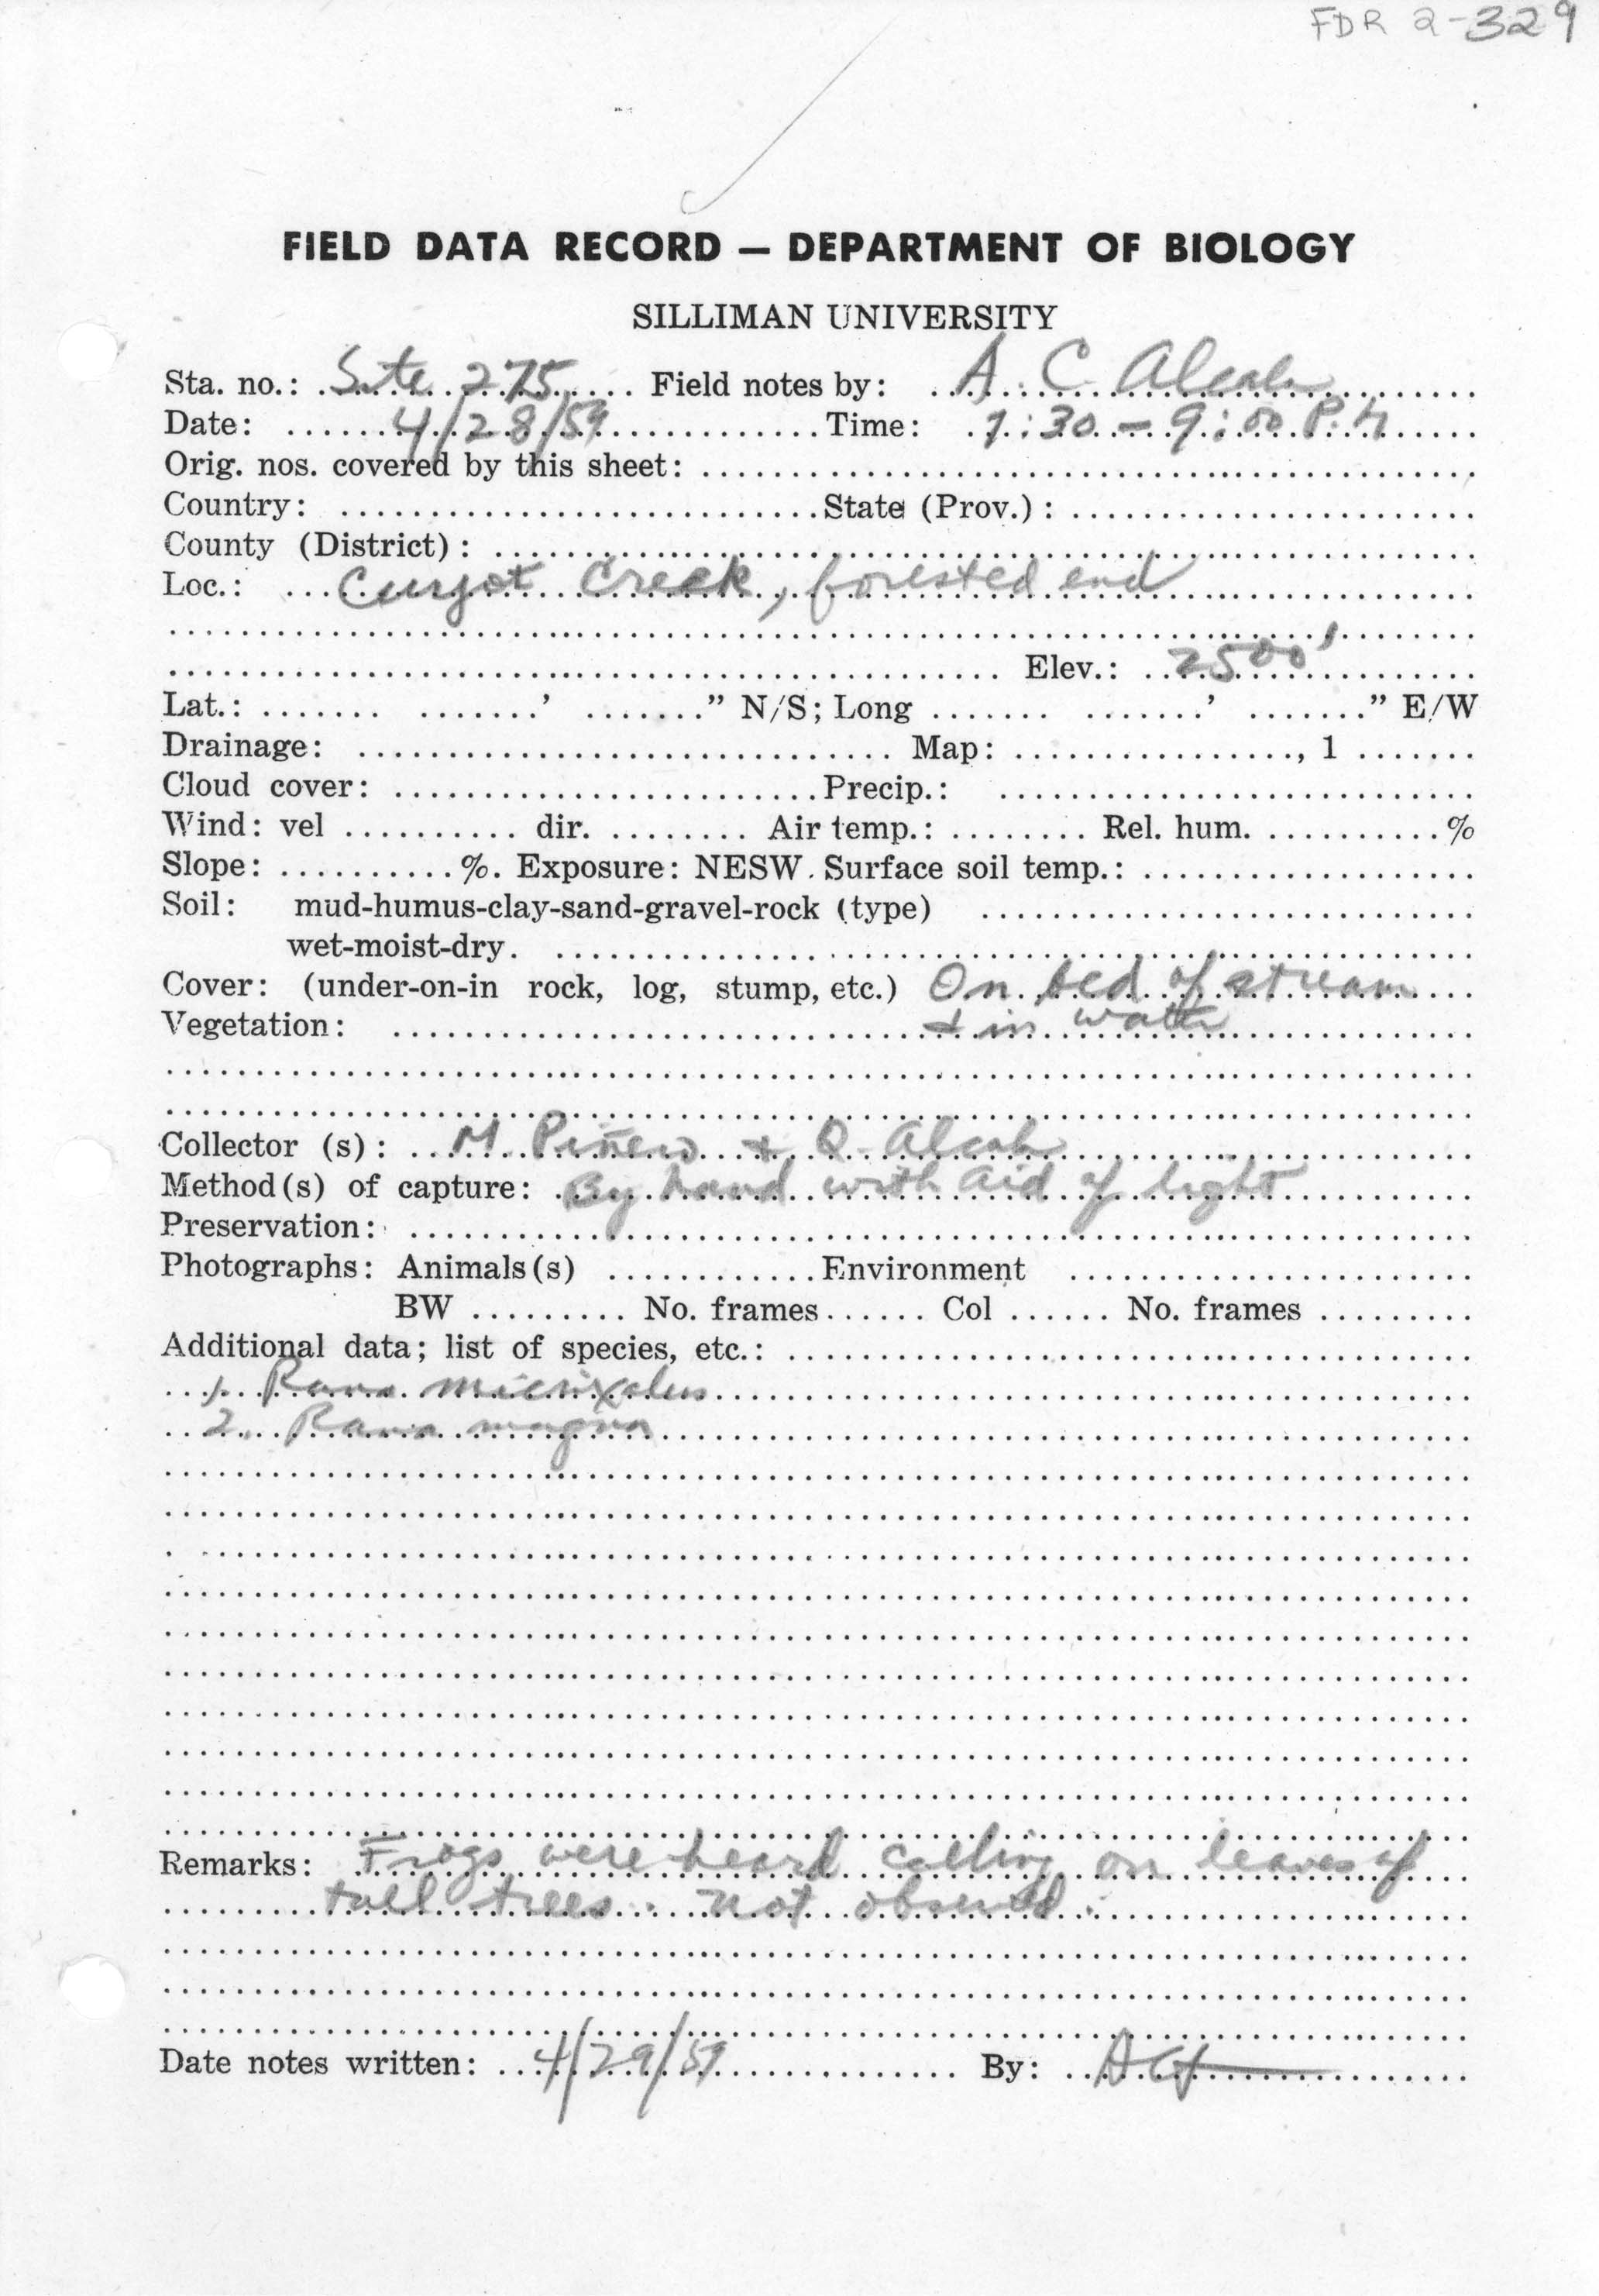 FDR 2-329
FIELD DATA RECORD — DEPARTMENT OF BIOLOGY
SILLIMAN UNIVERSITY
Sta. no.: Site 275 Field notes by: A. C. Alcala
Date: 4/28/59 Time: 7:30 - 9:00 P.M
Orig. nos. covered by this sheet:
Country: State (Prov.):
County (District):
Loc.: Creek, forested end
Elev.: 2500'
Lat.: ' " N/S; Long ' " E/W
Drainage: Map: , 1
Cloud cover: Precip.:
Wind: vel dir. Air temp.: Rel. hum. %
Slope: %. Exposure: NESW. Surface soil temp.:
Soil: mud-humus-clay-sand-gravel-rock (type)
wet-moist-dry.
Cover: (under-on-in rock, log, stump, etc.) On bed of stream
Vegetation: & in water
Collector (s): M. Piñero & Q. Alcala
Method(s) of capture: By hand with aid of light
Preservation:
Photographs: Animals(s) Environment
BW No. frames Col No. frames
Additional data; list of species, etc.:
1. Rana
2. Rana magna
Remarks: Frogs were heard calling on leaves of
tall trees. Not observed.
Date notes written: 4/29/59 By: ACA